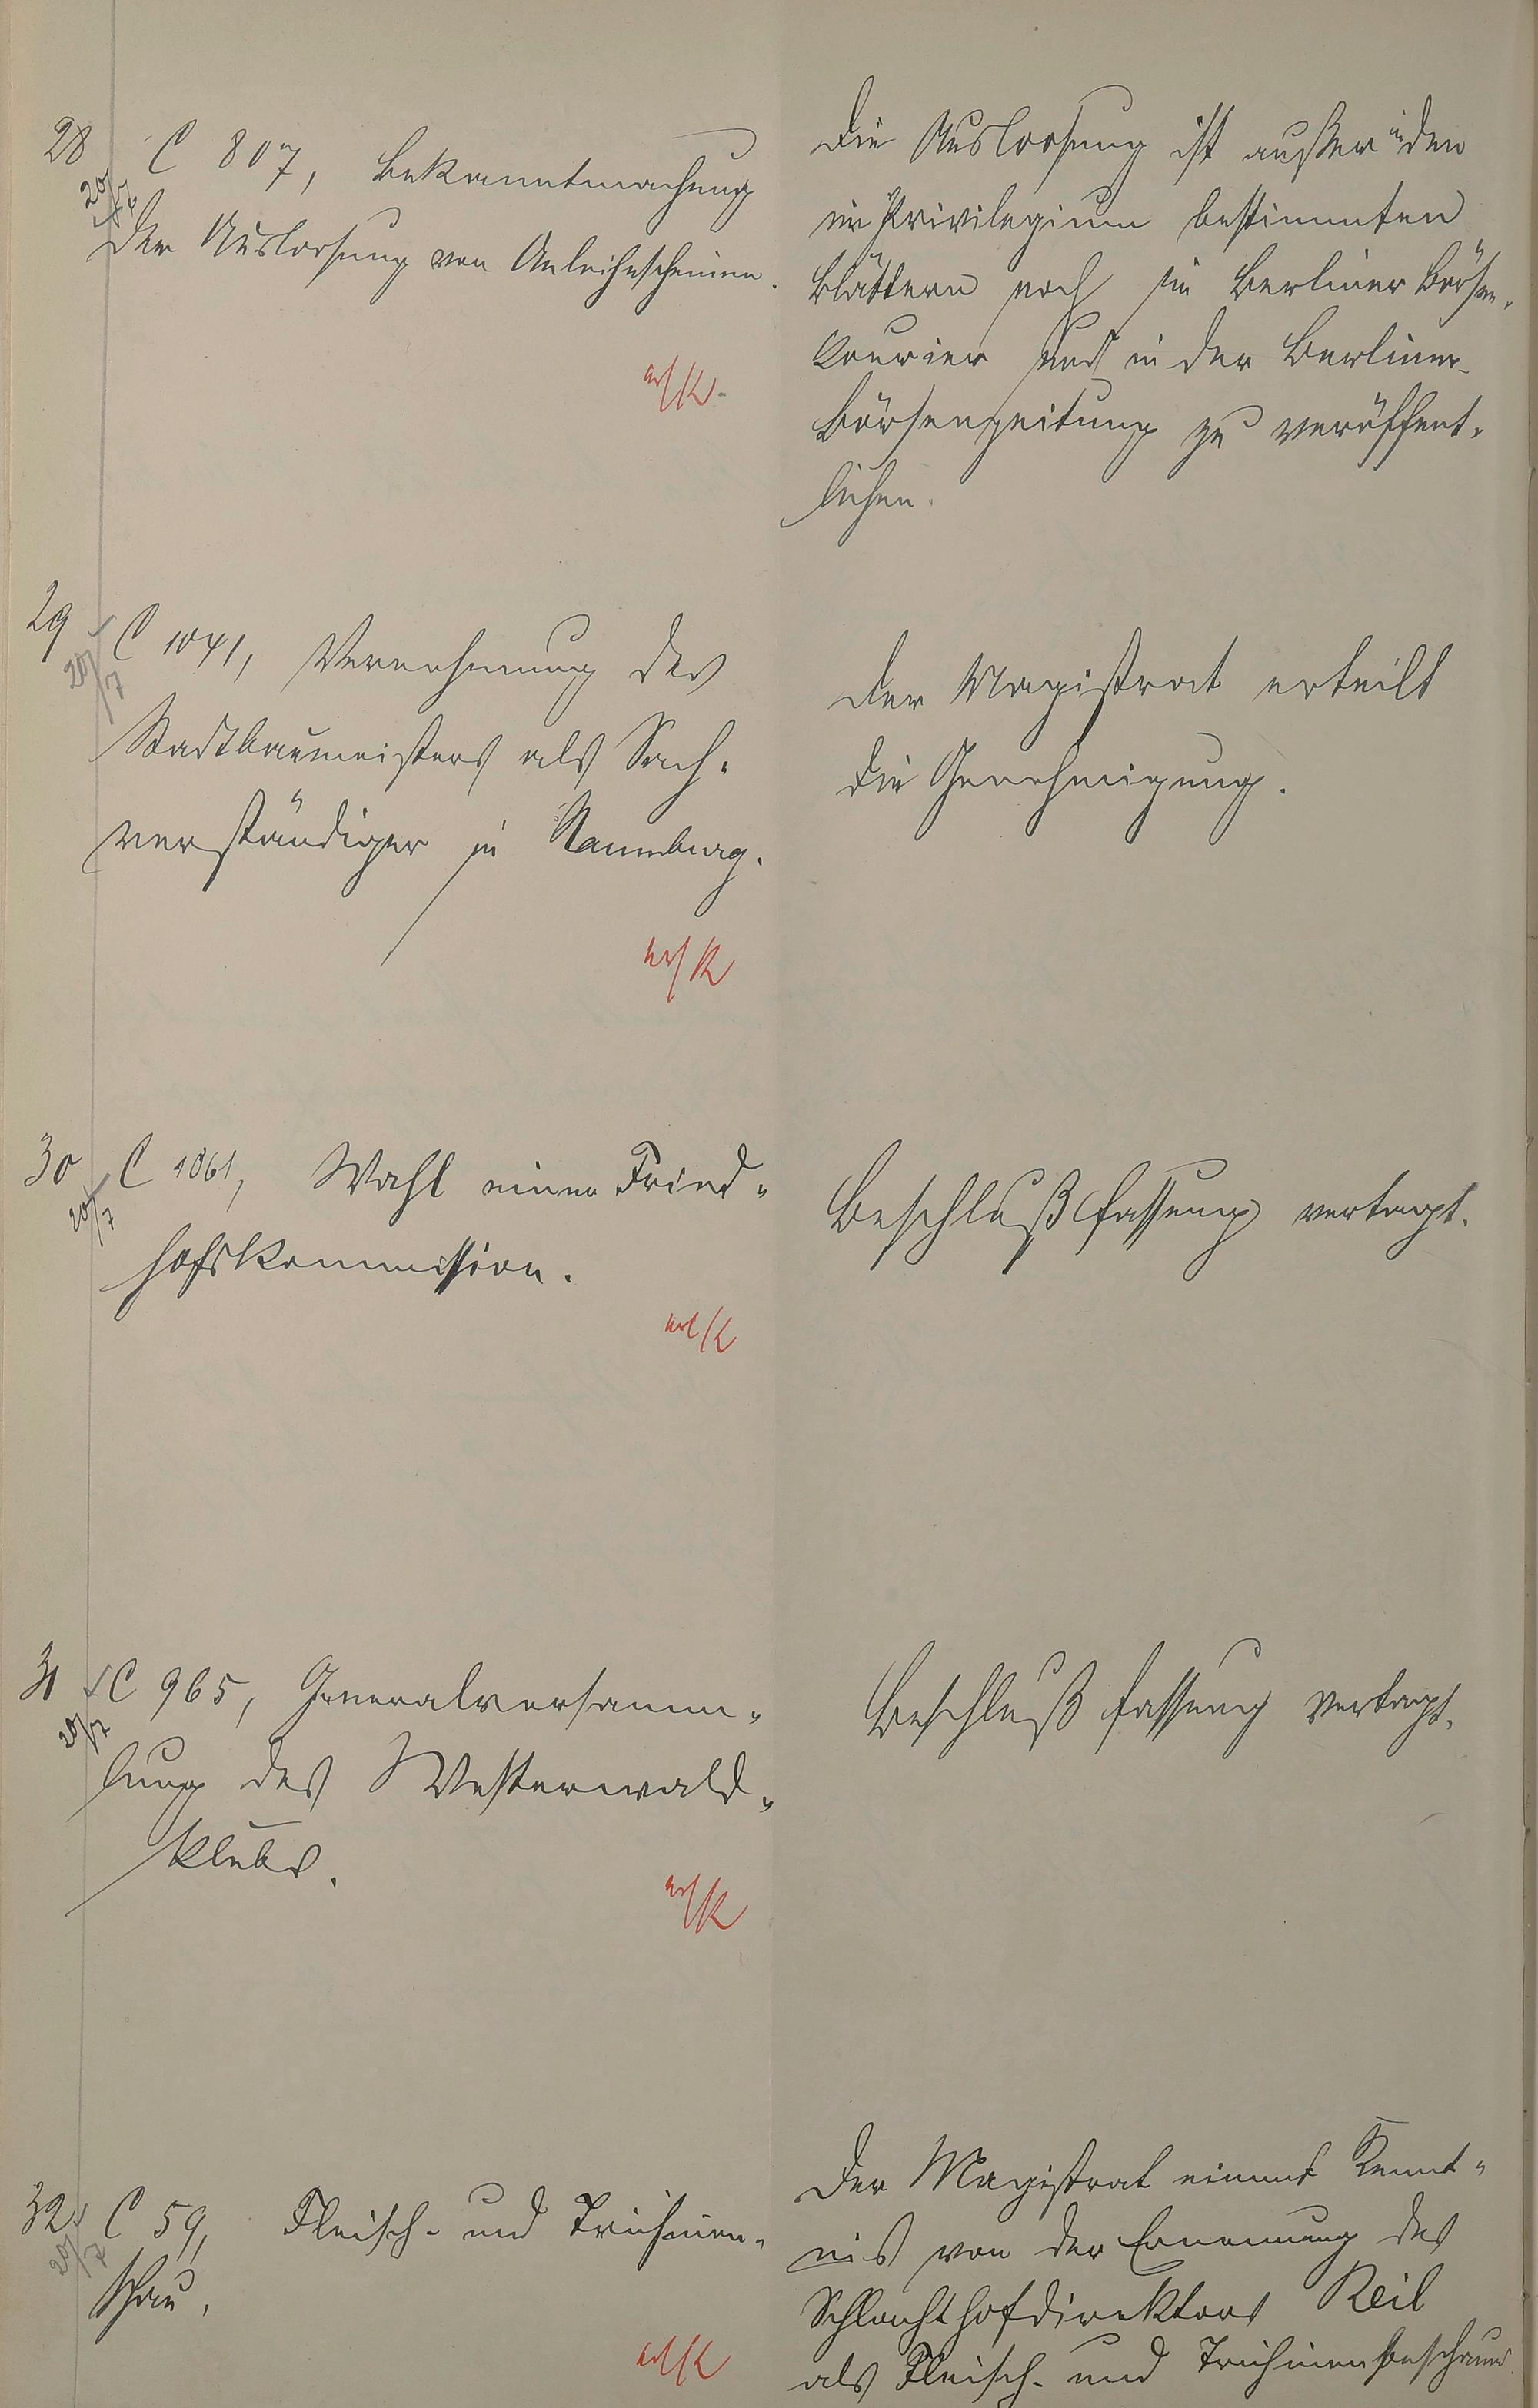 28
20/7
C 807, Bekanntmachung
der Ausloosung von Anleihescheinen.
Die Ausloosung ist außer in den
im Privilegium bestimmten
Blättern noch im Berliner Börsen-
Kourier und in der Berliner-
Börsenzeitung zu veröffent-
lichen.
29
20/7
C 1041, Vernehmung des
Stadtbaumeisters als Sach-
verständiger in Naumburg.
Der Magistrat erteilt
die Genehmigung.
30
20/7
C 1061, Wahl einer Fried-
hofskommission.
Beschlußfassung vertagt.
31
20/7
C 965, Generalversamm-
lung des Westerwald-
klubs.
Beschlußfassung vertagt.
32
20/7
C 59, Fleisch- und Trichinen-
schau.
Der Magistrat nimmt Kennt-
nis von der Ernennung des
Schlachthofdirektors Keil
als Fleisch- und Trichinenbeschauer.